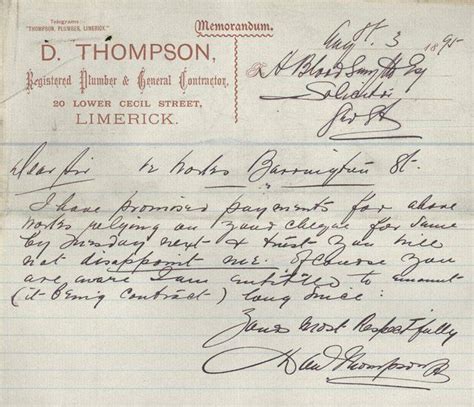 Telegrams:
"THOMPSON, PLUMBER, LIMERICK."
Memorandum.
D. THOMPSON,
Registered Plumber & General Contractor,
20 LOWER CECIL STREET,
LIMERICK.
Augst. 3 1895
H Blood Smyth Esq
Solicitor
Geo St
Dear Sir re works Barrington St.
I have promised payments for above
works relying on your cheque for same
by Tuesday next & trust you will
not disappoint me. Of course you
are aware I am entitled to amount
(it being contract) long since:
Yours most Respectfully
Thompson